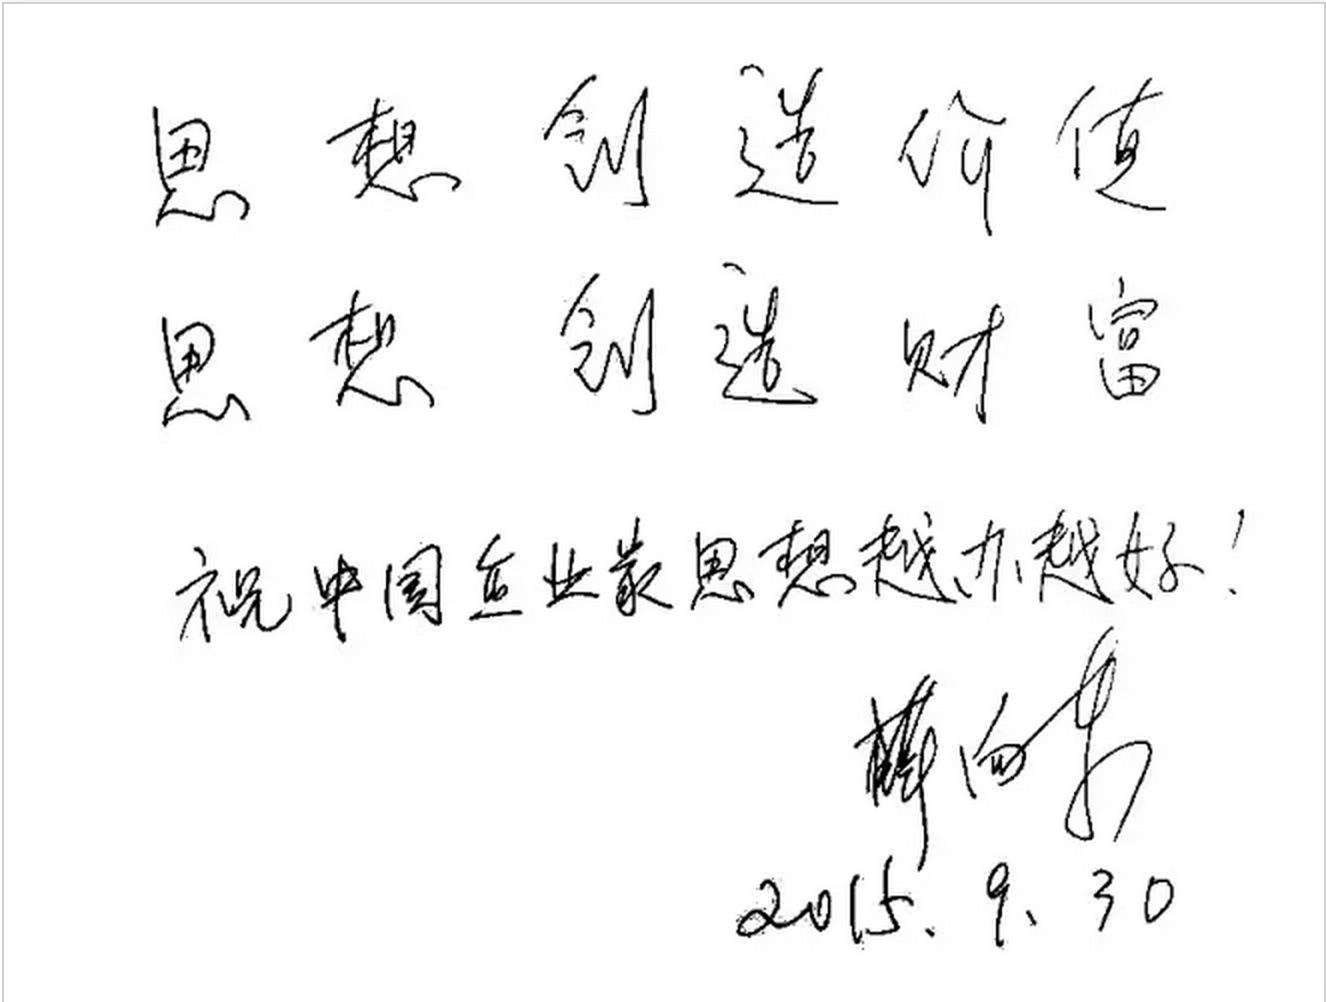 思想创造价值
思想创造财富
祝中国企业最思想越办越好！
薛向东
2015.9.30